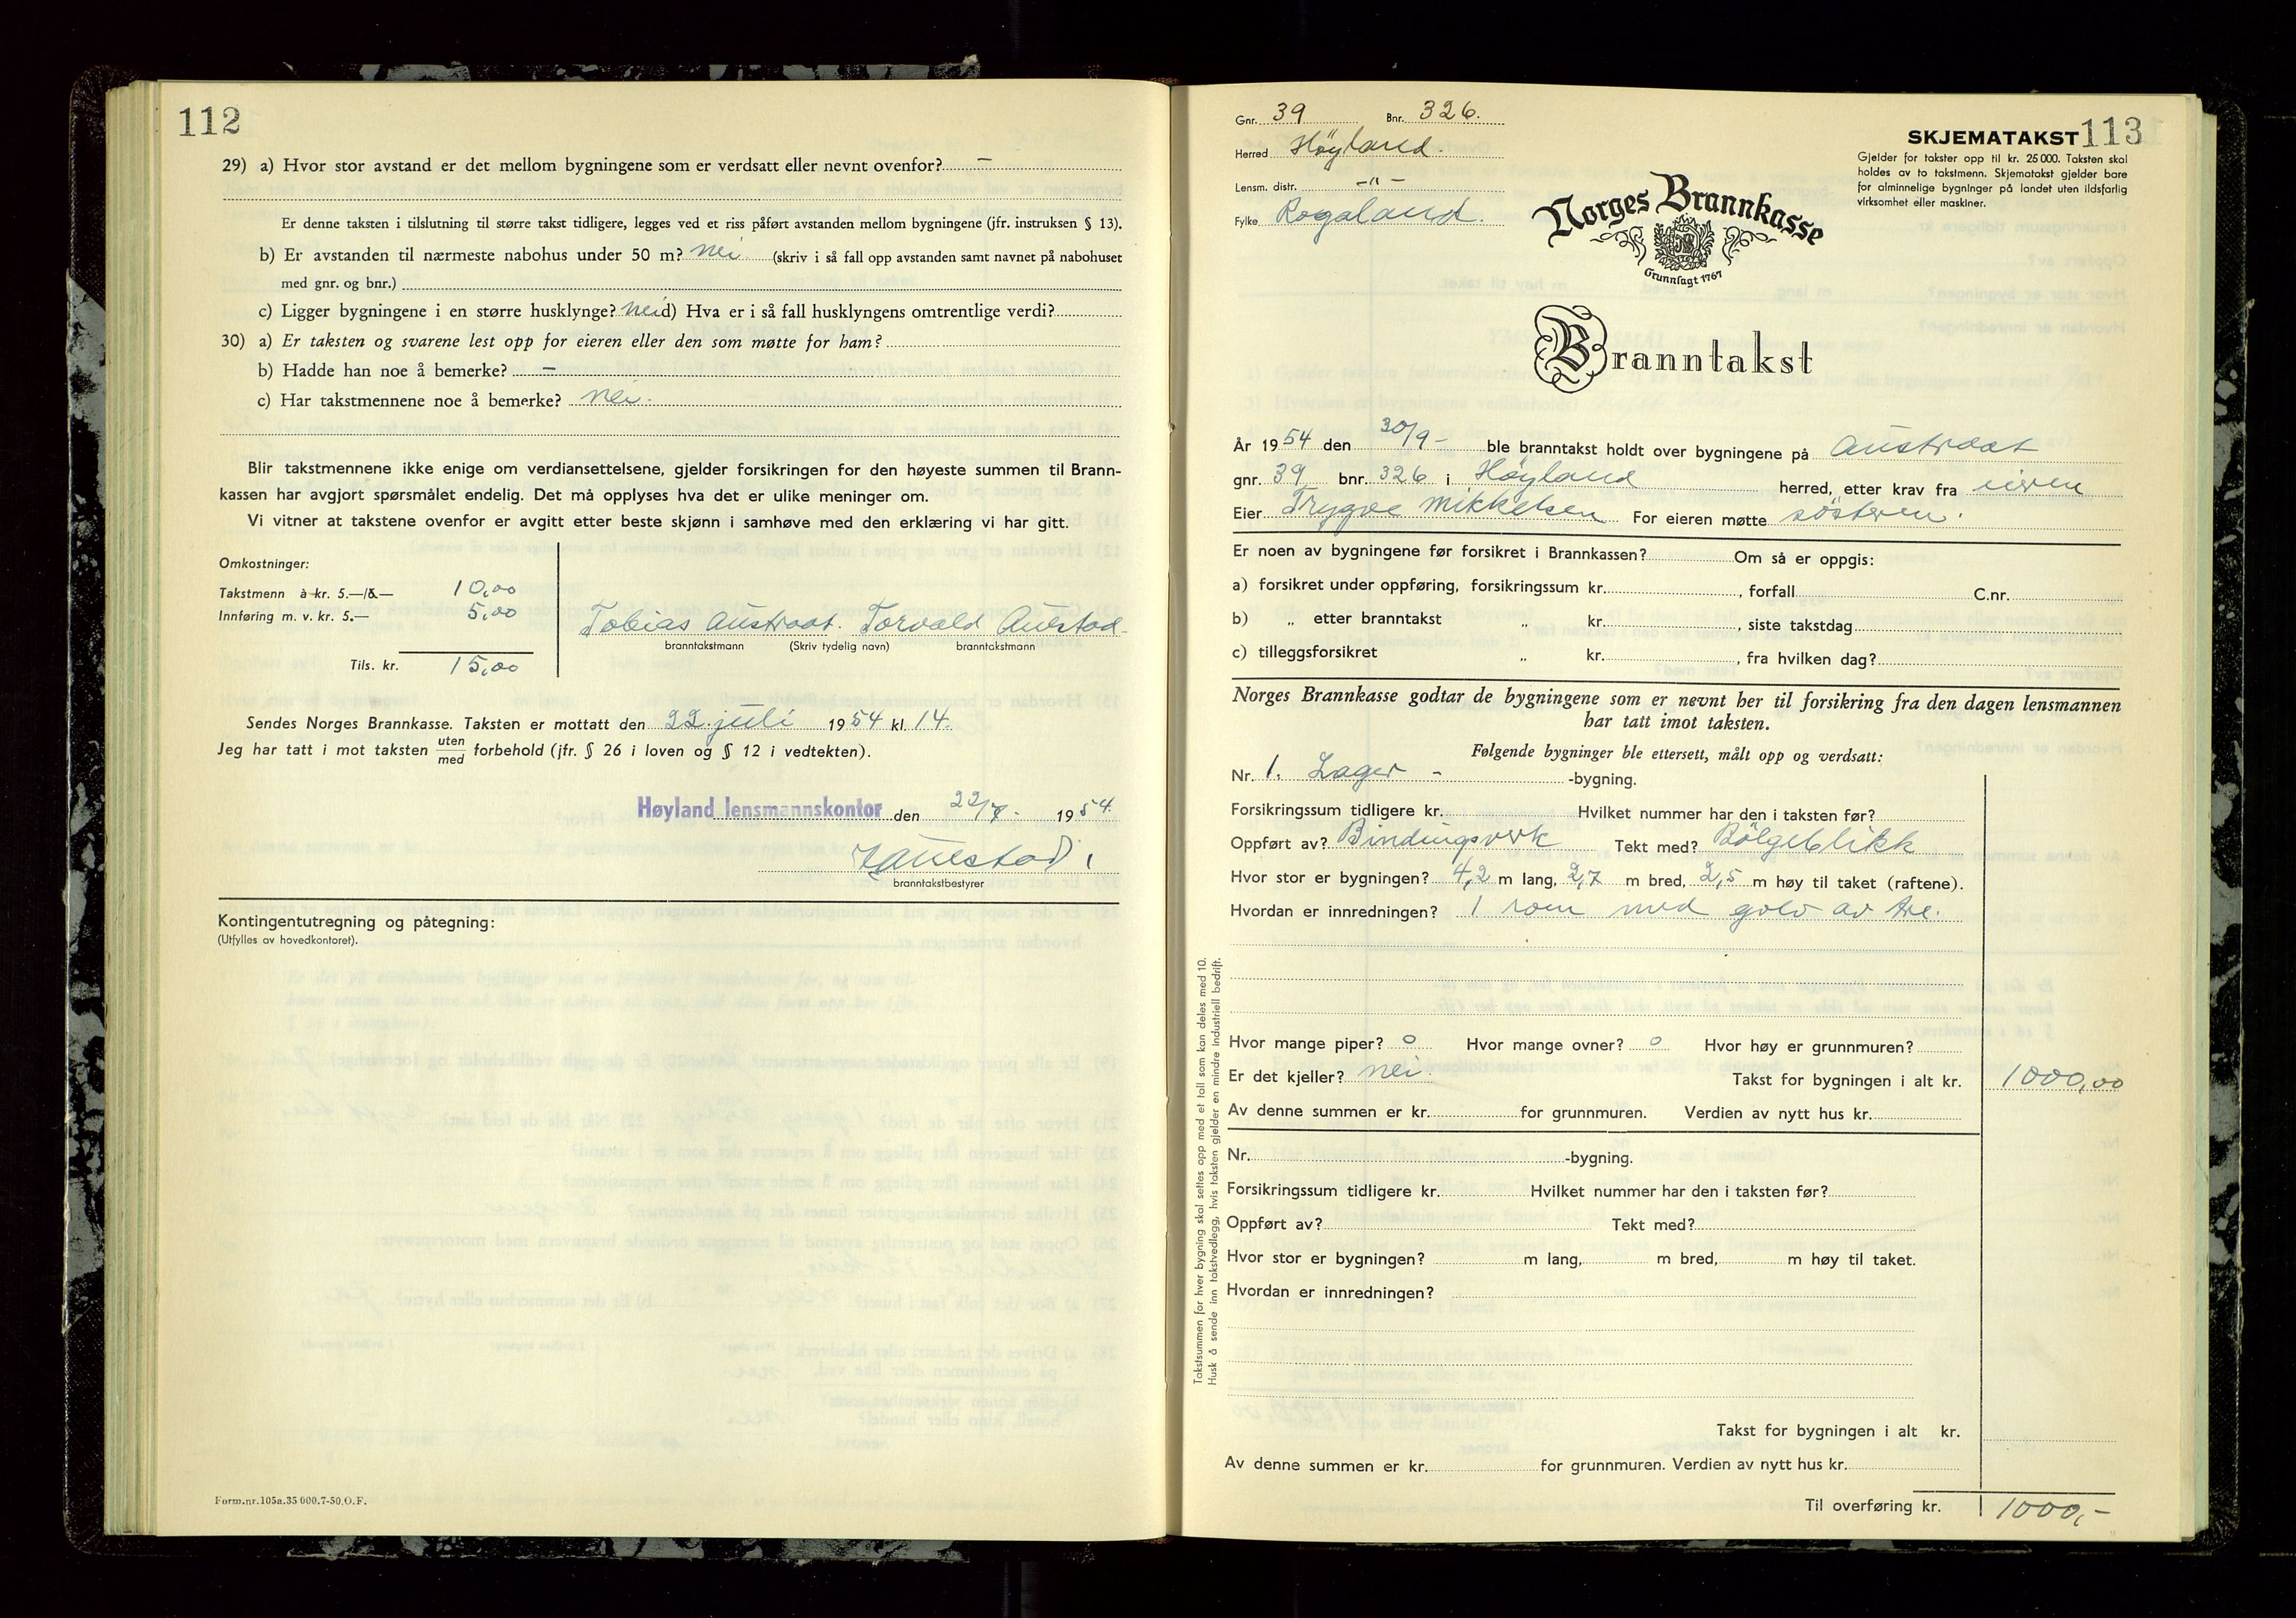 112
29) a) Hvor stor avstand er det mellom bygningene som er verdsatt eller nevnt ovenfor? –
Er denne taksten i tilslutning til større takst tidligere, legges ved et riss påført avstanden mellom bygningene (jfr. instruksen § 13).
b) Er avstanden til nærmeste nabohus under 50 m? nei (skriv i så fall opp avstanden samt navnet på nabohuset
med gnr. og bnr.)
c) Ligger bygningene i en større husklynge? nei d) Hva er i så fall husklyngens omtrentlige verdi?
30) a) Er taksten og svarene lest opp for eieren eller den som møtte for ham?
b) Hadde han noe å bemerke? –
c) Har takstmennene noe å bemerke? nei.
Blir takstmennene ikke enige om verdiansettelsene, gjelder forsikringen for den høyeste summen til Brann-
kassen har avgjort spørsmålet endelig. Det må opplyses hva det er ulike meninger om.
Vi vitner at takstene ovenfor er avgitt etter beste skjønn i samhøve med den erklæring vi har gitt.
Omkostninger:
Takstmenn à kr. 5.—/8.— 10,00
Innføring m. v. kr. 5.— 5,00
Tils. kr. 15,00
Tobias Austraat. Torvald Auestad
branntakstmann (Skriv tydelig navn) branntakstmann
Sendes Norges Brannkasse. Taksten er mottatt den 22. juli 1954 kl. 14.
Jeg har tatt i mot taksten uten/med forbehold (jfr. § 26 i loven og § 12 i vedtekten).
Høyland lensmannskontor den 22/7. 1954.
Auestad
branntakstbestyrer
Kontingentutregning og påtegning:
(Utfylles av hovedkontoret).
Form.nr.105a.35 000.7-50.O.F.
Gnr. 39 Bnr. 326.
Herred Höyland.
Lensm. distr. –"–
Fylke Rogaland.
SKJEMATAKST 113
Gjelder for takster opp til kr. 25 000. Taksten skal
holdes av to takstmenn. Skjematakst gjelder bare
for alminnelige bygninger på landet uten ildsfarlig
virksomhet eller maskiner.
Norges Brannkasse
Grunnlagt 1767
Branntakst
År 1954 den 30/9- ble branntakst holdt over bygningene på Austraat
gnr. 39 bnr. 326 i Höyland herred, etter krav fra eieren
Eier Trygve Mikkelsen For eieren møtte søsteren.
Er noen av bygningene før forsikret i Brannkassen? Om så er oppgis:
a) forsikret under oppføring, forsikringssum kr. , forfall C.nr.
b) „ etter branntakst „ kr. , siste takstdag
c) tilleggsforsikret „ kr. , fra hvilken dag?
Norges Brannkasse godtar de bygningene som er nevnt her til forsikring fra den dagen lensmannen
har tatt imot taksten.
Følgende bygninger ble ettersett, målt opp og verdsatt:
Nr. 1. Lager - -bygning.
Forsikringssum tidligere kr. Hvilket nummer har den i taksten før?
Oppført av? Bindingsverk Tekt med? Bölgeblikk
Hvor stor er bygningen? 4,2 m lang, 2,7 m bred, 2,5 m høy til taket (raftene).
Hvordan er innredningen? 1 rom med golv av tre.
Hvor mange piper? 0 Hvor mange ovner? 0 Hvor høy er grunnmuren?
Er det kjeller? nei. Takst for bygningen i alt kr. 1000,00
Av denne summen er kr. for grunnmuren. Verdien av nytt hus kr.
Nr. -bygning.
Forsikringssum tidligere kr. Hvilket nummer har den i taksten før?
Oppført av? Tekt med?
Hvor stor er bygningen? m lang, m bred, m høy til taket.
Hvordan er innredningen?
Takst for bygningen i alt kr.
Av denne summen er kr. for grunnmuren. Verdien av nytt hus kr.
Til overføring kr. 1000,-
Takstsummen for hver bygning skal settes opp med et tall som kan deles med 10.
Husk å sende inn takstvedlegg, hvis taksten gjelder en mindre industriell bedrift.